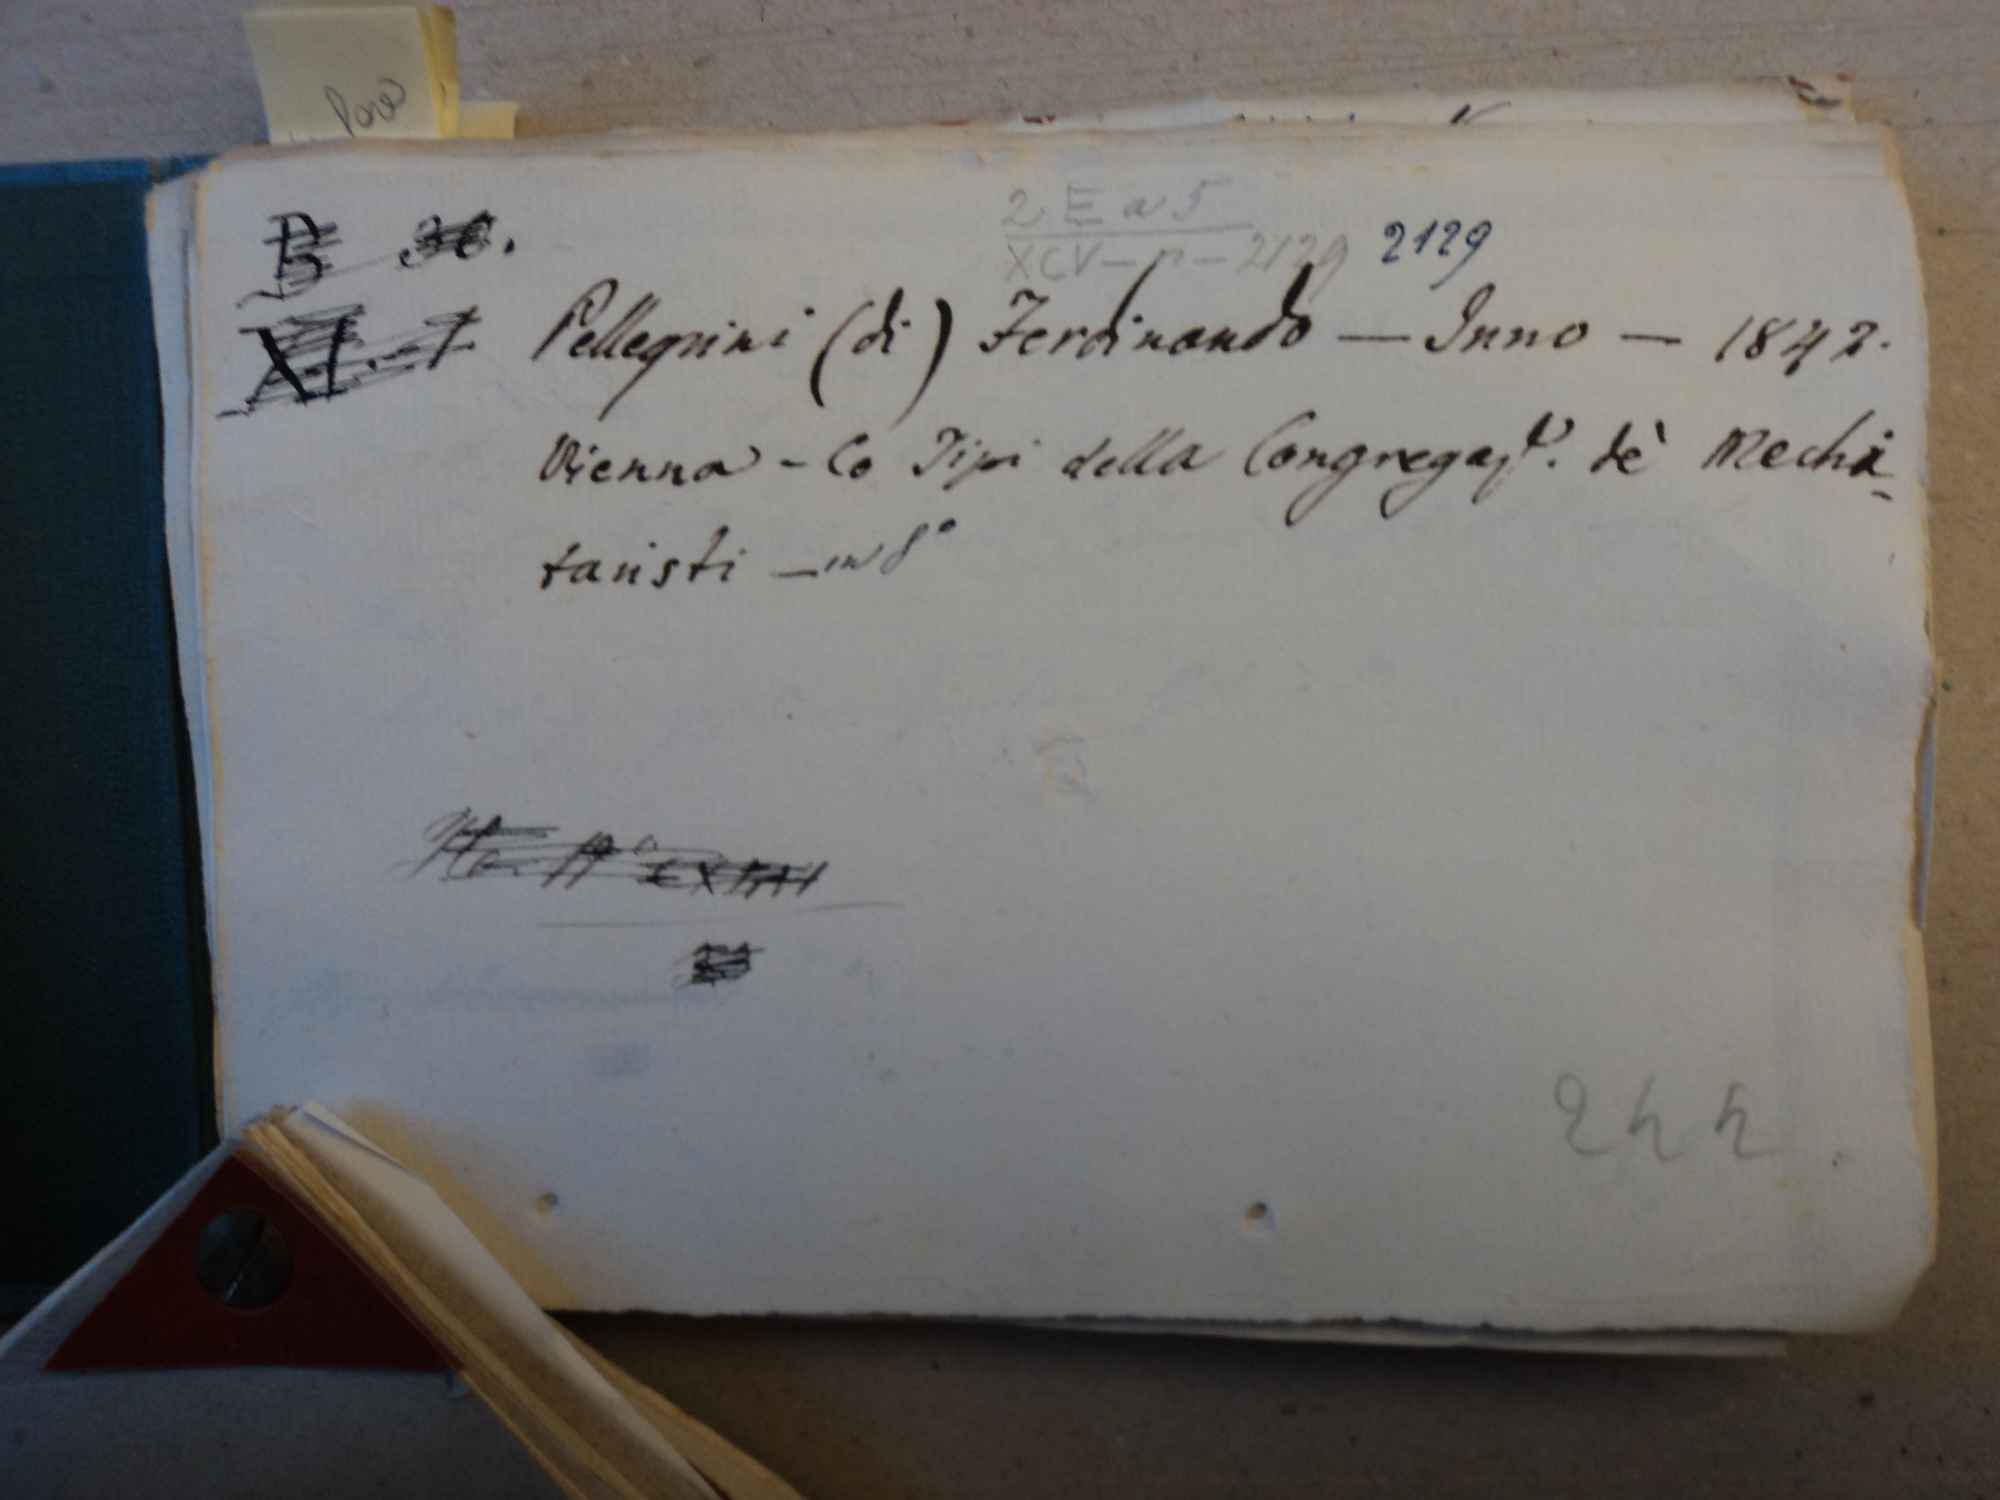 2 E a 5
XCV - n - 2129 2129
B 30.
XI. 7
Pellegrini (di) Ferdinando — Inno — 1842.
Vienna - Co Tipi della Congregaz. dè Mechi
taristi — in 8°
244